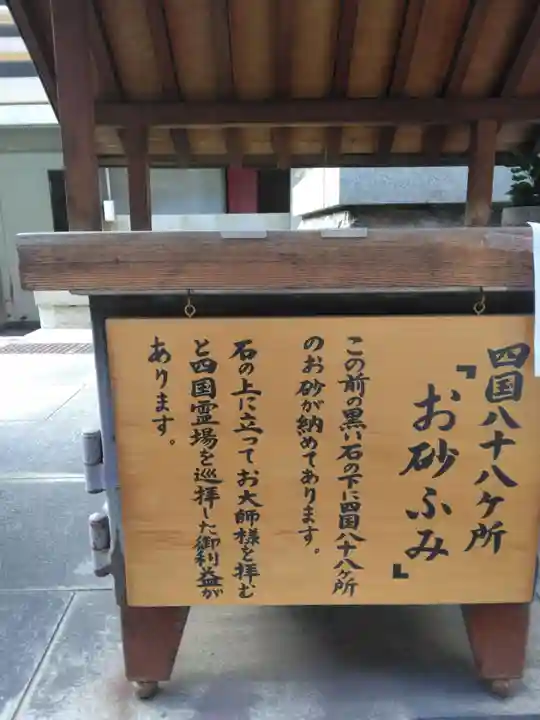 四国八十八ケ所
『お砂ふみ』
この前の黒い石の下に四国八十八ケ所
のお砂が納めてあります。
石の上に立ってお大師様を拝む
と四国霊場を巡拝した御利益が
あります。